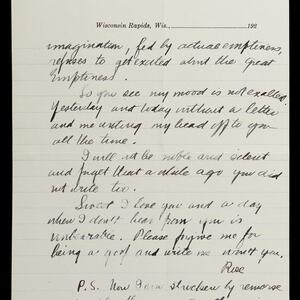 Wisconsin Rapids, Wis., 192
imagination, fed by actual emptiness,
refuses to get excited about the Great
Emptiness.
So you see my mood is not exalted.
Yesterday and today without a letter
and me writing my head off to you
all the time.
I will be noble and silent
and forget that a while ago you did
not write too.
Sweet I love you and a day
when I don't hear from you is
unbearable. Please forgive me for
being a goof and write me won't you.
Rose
P.S. Now I am stricken by remorse